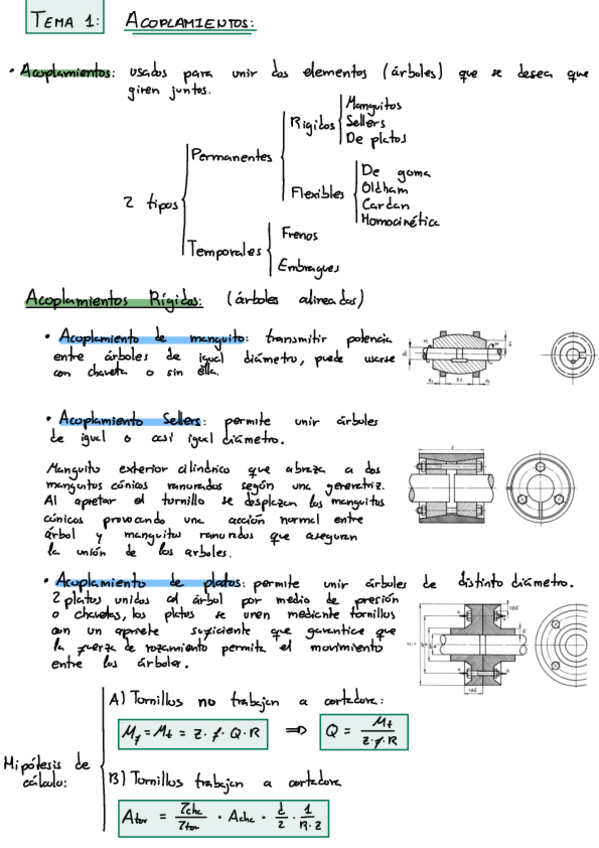 TEMA 1: ACOPLAMIENTOS:
• Acoplamientos: usados para unir dos elementos (árboles) que se desea que
giren juntos.
2 tipos
Permanentes
Rígidos
Manguitos
Sellers
De platos
Flexibles
De goma
Oldham
Cardan
Homocinética
Temporales
Frenos
Embragues
Acoplamientos Rígidos: (árboles alineados)
• Acoplamiento de manguito: transmitir potencia
entre árboles de igual diámetro, puede usarse
con chaveta o sin ella.
• Acoplamiento Sellers: permite unir árboles
de igual o casi igual diámetro.
Manguito exterior cilíndrico que abraza a dos
manguitos cónicos ranurados según una generatriz.
Al apretar el tornillo se desplazan los manguitos
cónicos provocando una acción normal entre
árbol y manguitos ranurados que aseguran
la unión de los arboles.
• Acoplamiento de platos: permite unir árboles de distinto diámetro.
2 platos unidos al árbol por medio de presión
o chavetas, los platos se unen mediante tornillos
con un apriete suficiente que garantice que
la fuerza de rozamiento permita el movimiento
entre los árboles.
Hipótesis de
cálculo:
A) Tornillos no trabajan a cortadura:
M_f = M_t = z · f · Q · R ⇒ Q = M_t / (z · f · R)
B) Tornillos trabajan a cortadura
A_tor = τ_cha / τ_tor · A_cha · d/2 · 1/(R · z)